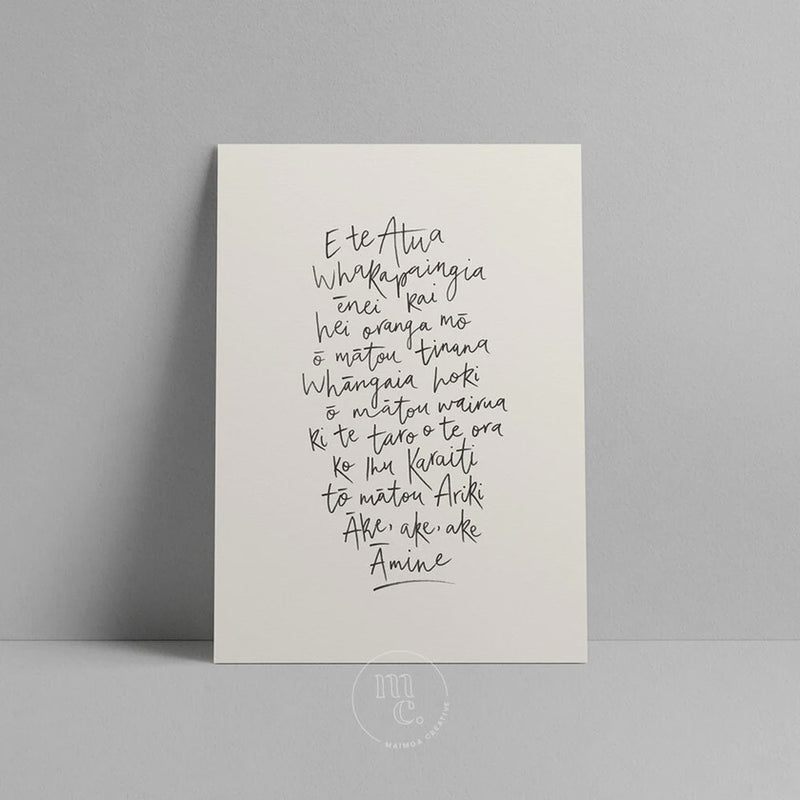 E te Atua
Whakapaingia
ēnei kai
hei oranga mō
ō mātou tinana
Whāngaia hoki
ō mātou wairua
ki te taro o te ora
ko Ihu Karaiti
tō mātou Ariki
Āke, ake, ake
Āmine
mc.
MAIMOA CREATIVE